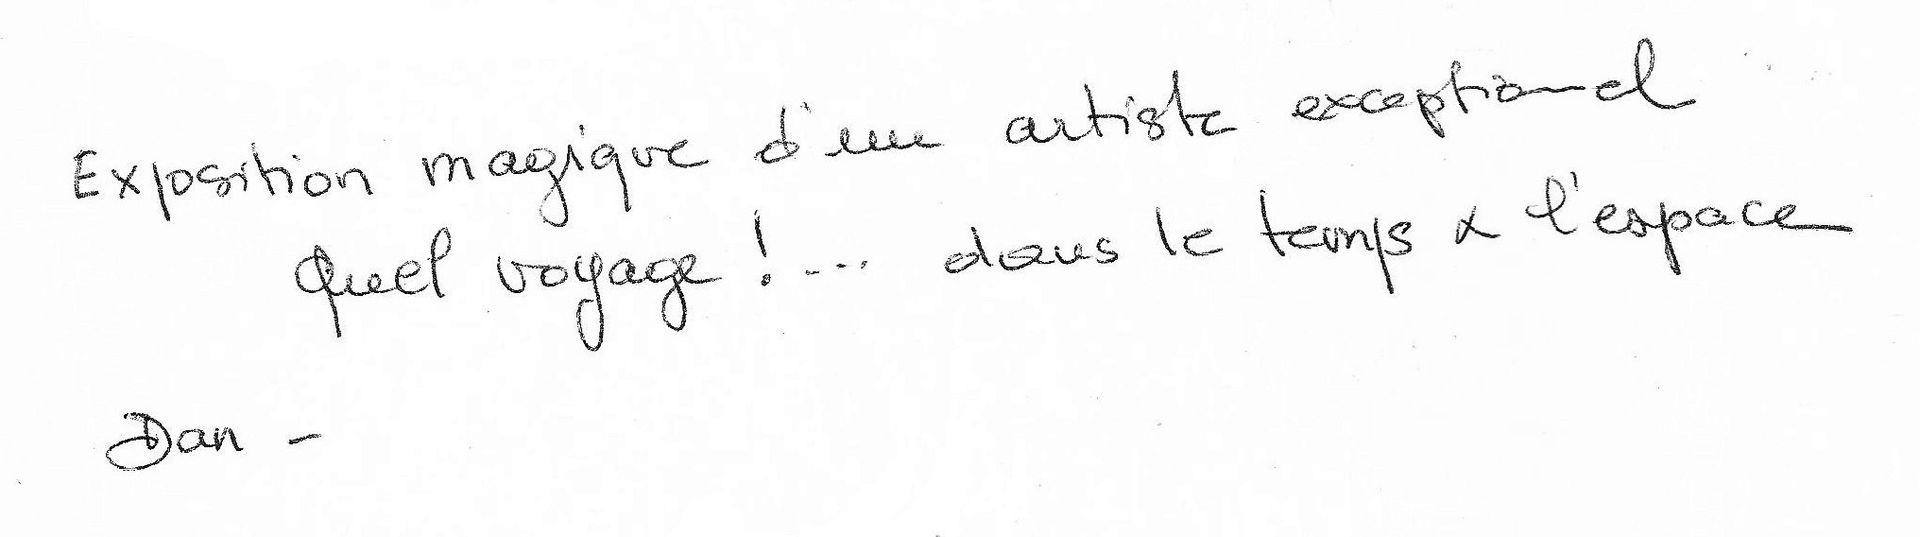 Exposition magique d'un artiste exceptionnel
Quel voyage !... dans le temps & l'espace
Dan -